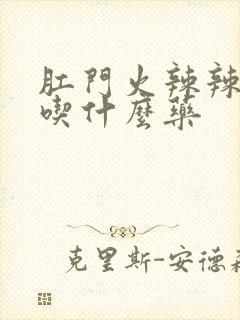 肛門火辣辣
喫什麼藥
克里斯-安德森